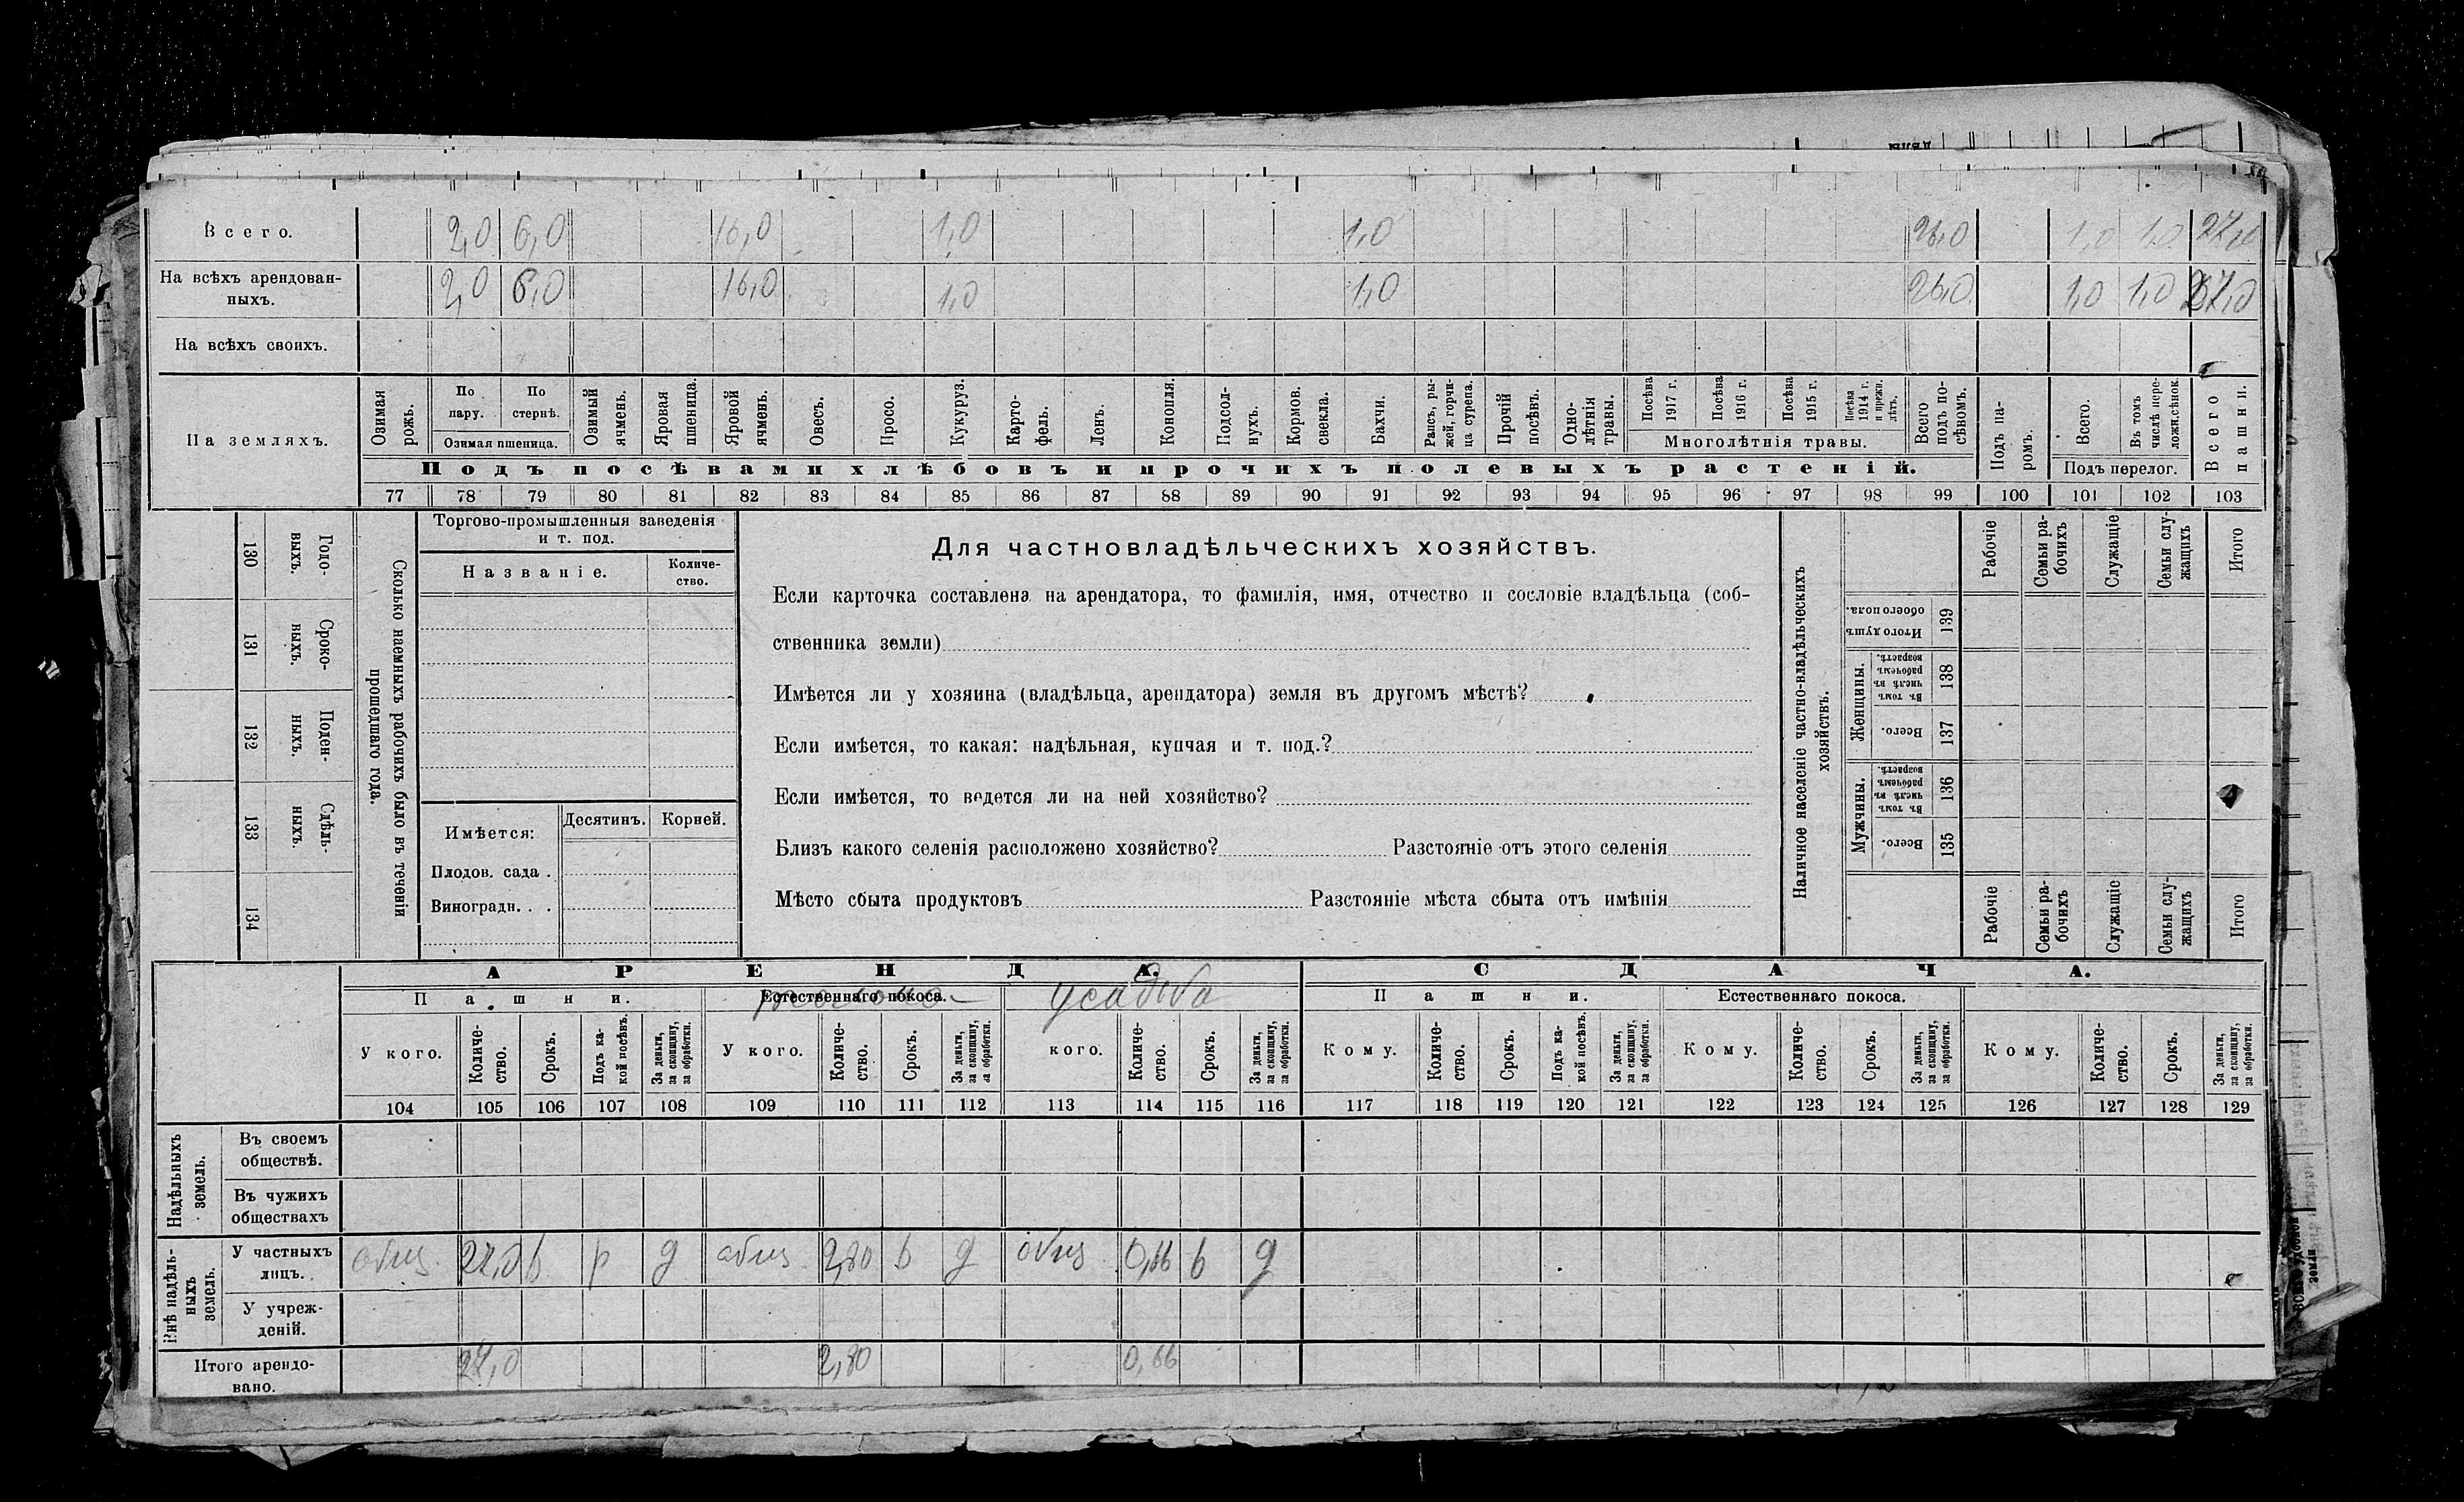 Всего. 2,0 6,0 16,0 1,0 1,0 26,0 1,0 1,0 27,0
На всѣхъ арендован-
ныхъ. 2,0 6,0 16,0 1,0 1,0 26,0 1,0 1,0 27,0
На всѣхъ своихъ.
На земляхъ.
Озимая рожь.
По пару.
По стернѣ.
Озимая пшеница.
Озимый ячмень.
Яровая пшеница.
Яровой ячмень.
Овесъ.
Просо.
Кукуруз.
Карто-
фель.
Ленъ.
Конопля.
Подсол-
нухъ.
Кормов.
свекла.
Бахчи.
Рапсъ, ры-
жей, горчи-
ца сурепа.
Прочій
посѣвъ.
Одно-
лѣтнія
травы.
Посѣва 1917 г.
Посѣва 1916 г.
Посѣва 1915 г.
Посѣва 1914 г. и прежн. лѣтъ.
Многолѣтнія травы.
Всего подъ по-
сѣвомъ.
Подъ па-
ромъ.
Всего.
Въ томъ числѣ пере-
ложн.сѣнок.
Подъ перелог.
Всего пашни.
Подъ посѣвами хлѣбовъ и прочихъ полевыхъ растеній.
77 78 79 80 81 82 83 84 85 86 87 88 89 90 91 92 93 94 95 96 97 98 99 100 101 102 103
130 Годо-
выхъ.
131 Сроко-
выхъ.
132 Поден-
ныхъ.
133 Сдѣль-
ныхъ.
134
Сколько наемныхъ рабочихъ было въ теченіи
прошедшаго года.
Торгово-промышленныя заведенія
и т. под.
Названіе.
Количе-
ство.
Имѣется:
Десятинъ. Корней.
Плодов. сада .
Виноградн. . .
Для частновладѣльческихъ хозяйствъ.
Если карточка составлена на арендатора, то фамилія, имя, отчество и сословіе владѣльца (соб-
ственника земли)
Имѣется ли у хозяина (владѣльца, арендатора) земля въ другомъ мѣстѣ?
Если имѣется, то какая: надѣльная, купчая и т. под.?
Если имѣется, то ведется ли на ней хозяйство?
Близъ какого селенія расположено хозяйство? Разстояніе отъ этого селенія
Мѣсто сбыта продуктовъ Разстояніе мѣста сбыта отъ имѣнія
Наличное населеніе частно-владѣльческихъ
хозяйствъ.
Рабочіе
Семьи ра-
бочихъ
Служащіе
Семьи слу-
жащихъ
Итого
Итого душъ
обоего пола. 139
Женщины.
Въ томъ числѣ въ рабочемъ возрастѣ. 138
Всего. 137
Мужчины.
Въ томъ числѣ въ рабочемъ возрастѣ. 136
Всего. 135
Рабочіе
Семьи ра-
бочихъ
Служащіе
Семьи слу-
жащихъ
Итого
АРЕНДА. СДАЧА.
Пашни. Естественнаго покоса. усадьба Пашни. Естественнаго покоса.
У кого.
Количе-
ство.
Срокъ.
Подъ ка-
кой посѣвъ.
За деньги,
за скопщину,
за обработки.
У кого.
Количе-
ство.
Срокъ.
За деньги,
за скопщину,
за обработки.
кого.
Количе-
ство.
Срокъ.
За деньги,
за скопщину,
за обработки.
Кому.
Количе-
ство.
Срокъ.
Подъ ка-
кой посѣвъ.
За деньги,
за скопщину,
за обработки.
Кому.
Количе-
ство.
Срокъ.
За деньги,
за скопщину,
за обработки.
Кому.
Количе-
ство.
Срокъ.
За деньги,
за скопщину,
за обработки.
104 105 106 107 108 109 110 111 112 113 114 115 116 117 118 119 120 121 122 123 124 125 126 127 128 129
Надѣльныхъ
земель.
Въ своемъ
обществѣ.
Въ чужихъ
обществахъ
Внѣ надѣль-
ныхъ
земель.
У частныхъ
лицъ. общ. 27,0 в р д общ 2,80 в д общ 0,66 в д
У учреж-
деній.
Итого арендо-
вано. 27,0 2,80 0,66